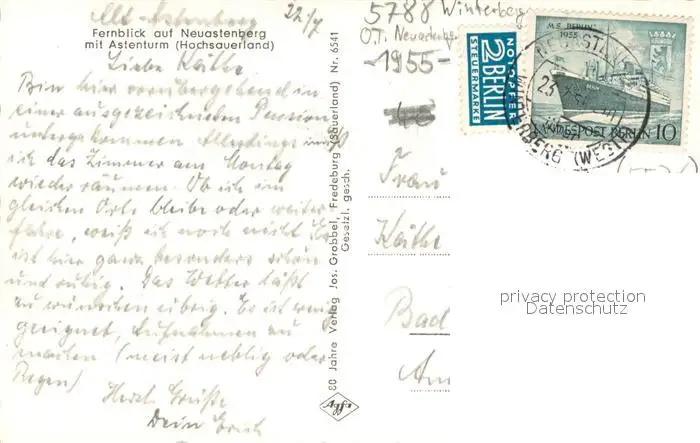 Alt Astenberg 22/7
Fernblick auf Neuastenberg
mit Astenturm (Hochsauerland)
Liebe Käthe
Bin hier vorübergehend in
einer ausgezeichneten Pension
untergekommen. Allerdings muß
ich das Zimmer am Montag
wieder räumen. Ob ich im
gleichen Ort bleibe oder weiter
fahre, weiß ich noch nicht. Es
ist hier ganz besonders schön
und ruhig. Das Wetter läßt
zu wünschen übrig. Es ist wenig
geeignet, Aufnahmen zu
machen (meist neblig oder
Regen)
Herzl. Grüße
Dein Erich
80 Jahre Verlag Jos. Grobbel, Fredeburg (Sauerland) Nr. 6541
Gesetzl. gesch.
Agfa
5788 Winterberg
O.T. Neuastenberg
-1955-
NOTOPFER
2 BERLIN
STEUERMARKE
M.S. "BERLIN"
1955
LANDESPOST BERLIN 10
23
(WESTF)
Frau
Käthe
Bad
Am
privacy protection
Datenschutz